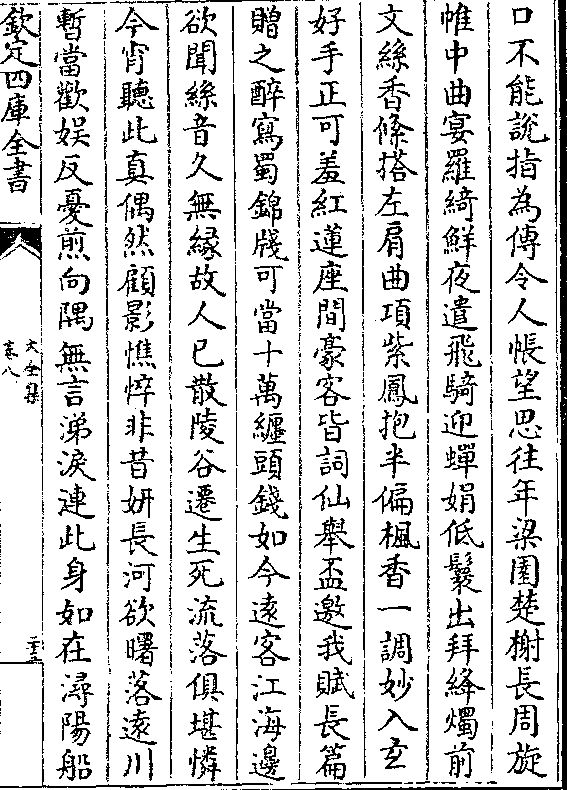 口不能說指為傳令人悵望思往年梁園楚榭長周旋
帷中曲宴羅綺鮮夜遣飛騎迎蟬娟低鬟出拜絳燭前
文絲香絛搭左肩曲項紫鳳抱半偏楓香一調妙入玄
好手正可羞紅蓮座間豪客皆詞仙舉盃邀我賦長篇
贈之醉寫蜀錦牋可當十萬纏頭錢如今遠客江海邊
欲聞絲音久無緣故人已散陵谷遷生死流落俱堪憐
今宵聽此真偶然顧影憔悴非昔妍長河欲曙落遠川
暫當歡娱反憂煎向隅無言涕淚連此身如在潯陽船
欽定四庫全書
大全集
卷八